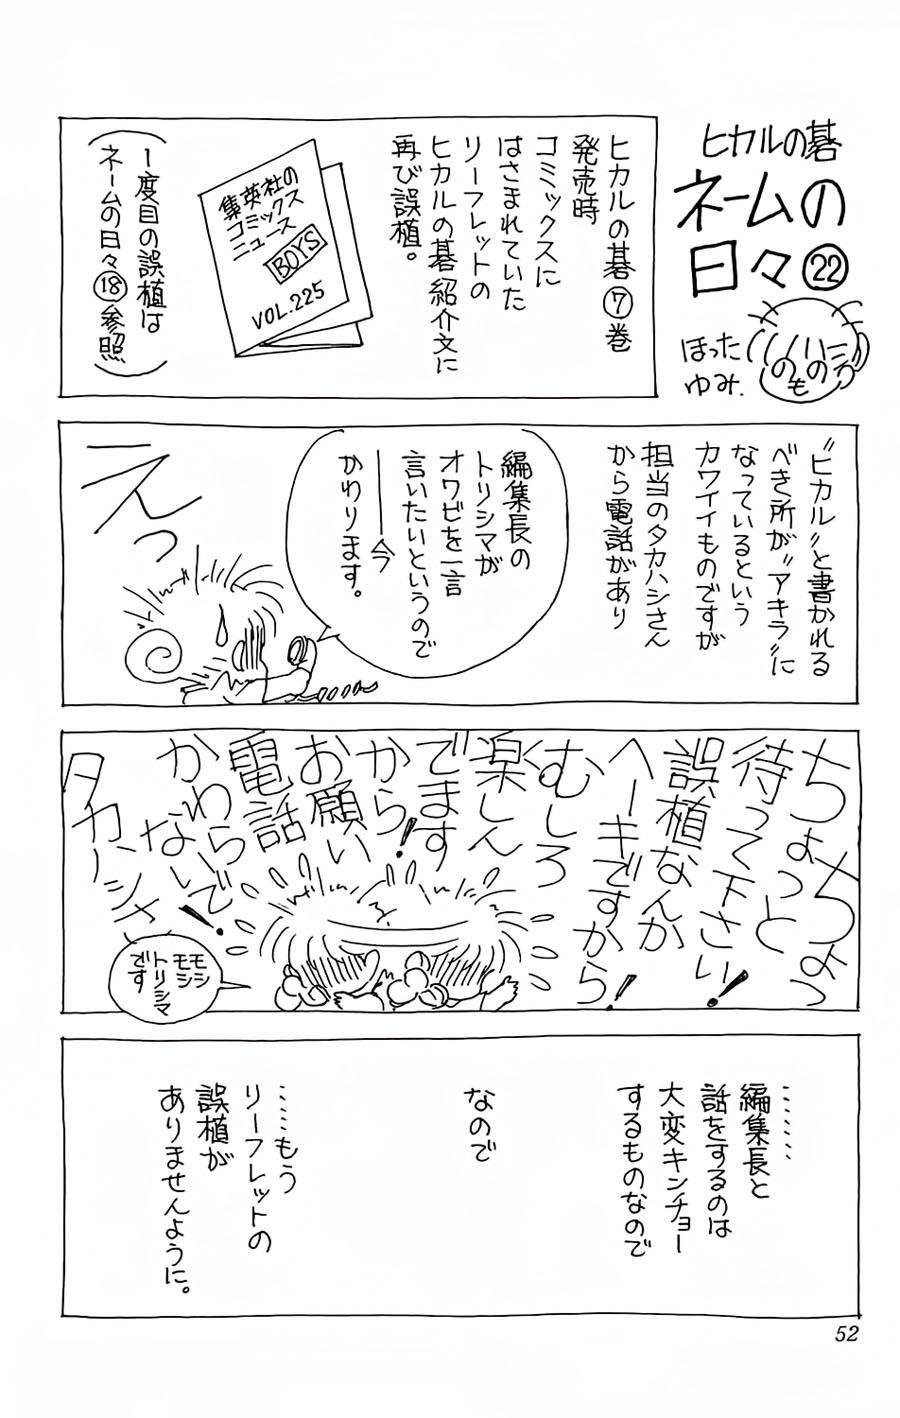 ヒカルの碁
ネームの
日々㉒
ほった
ゆみ.
ヒカルの碁⑦巻
発売時
コミックスに
はさまれていた
リーフレットの
ヒカルの碁紹介文に
再び誤植。
集英社の
コミックス
ニュース
BOYS
VOL.225
(1度目の誤植は
ネームの日々⑱参照)
〝ヒカル〟と書かれる
べき所が〝アキラ〟に
なっているという
カワイイものですが
担当のタカハシさん
から電話があり
編集長の
トリシマが
オワビを一言
言いたいというので
――今
かわります。
えっ
ちょちょっ
ちょっと
待って下さい!
誤植なんか
ヘーキですから!
むしろ
楽しん
でます
から!
お願い
電話
かわらないで!
タカハシさ
モシ
モシ
トリシマ
です
……
編集長と
話をするのは
大変キンチョー
するものなので
なので
……もう
リーフレットの
誤植が
ありませんように。
52